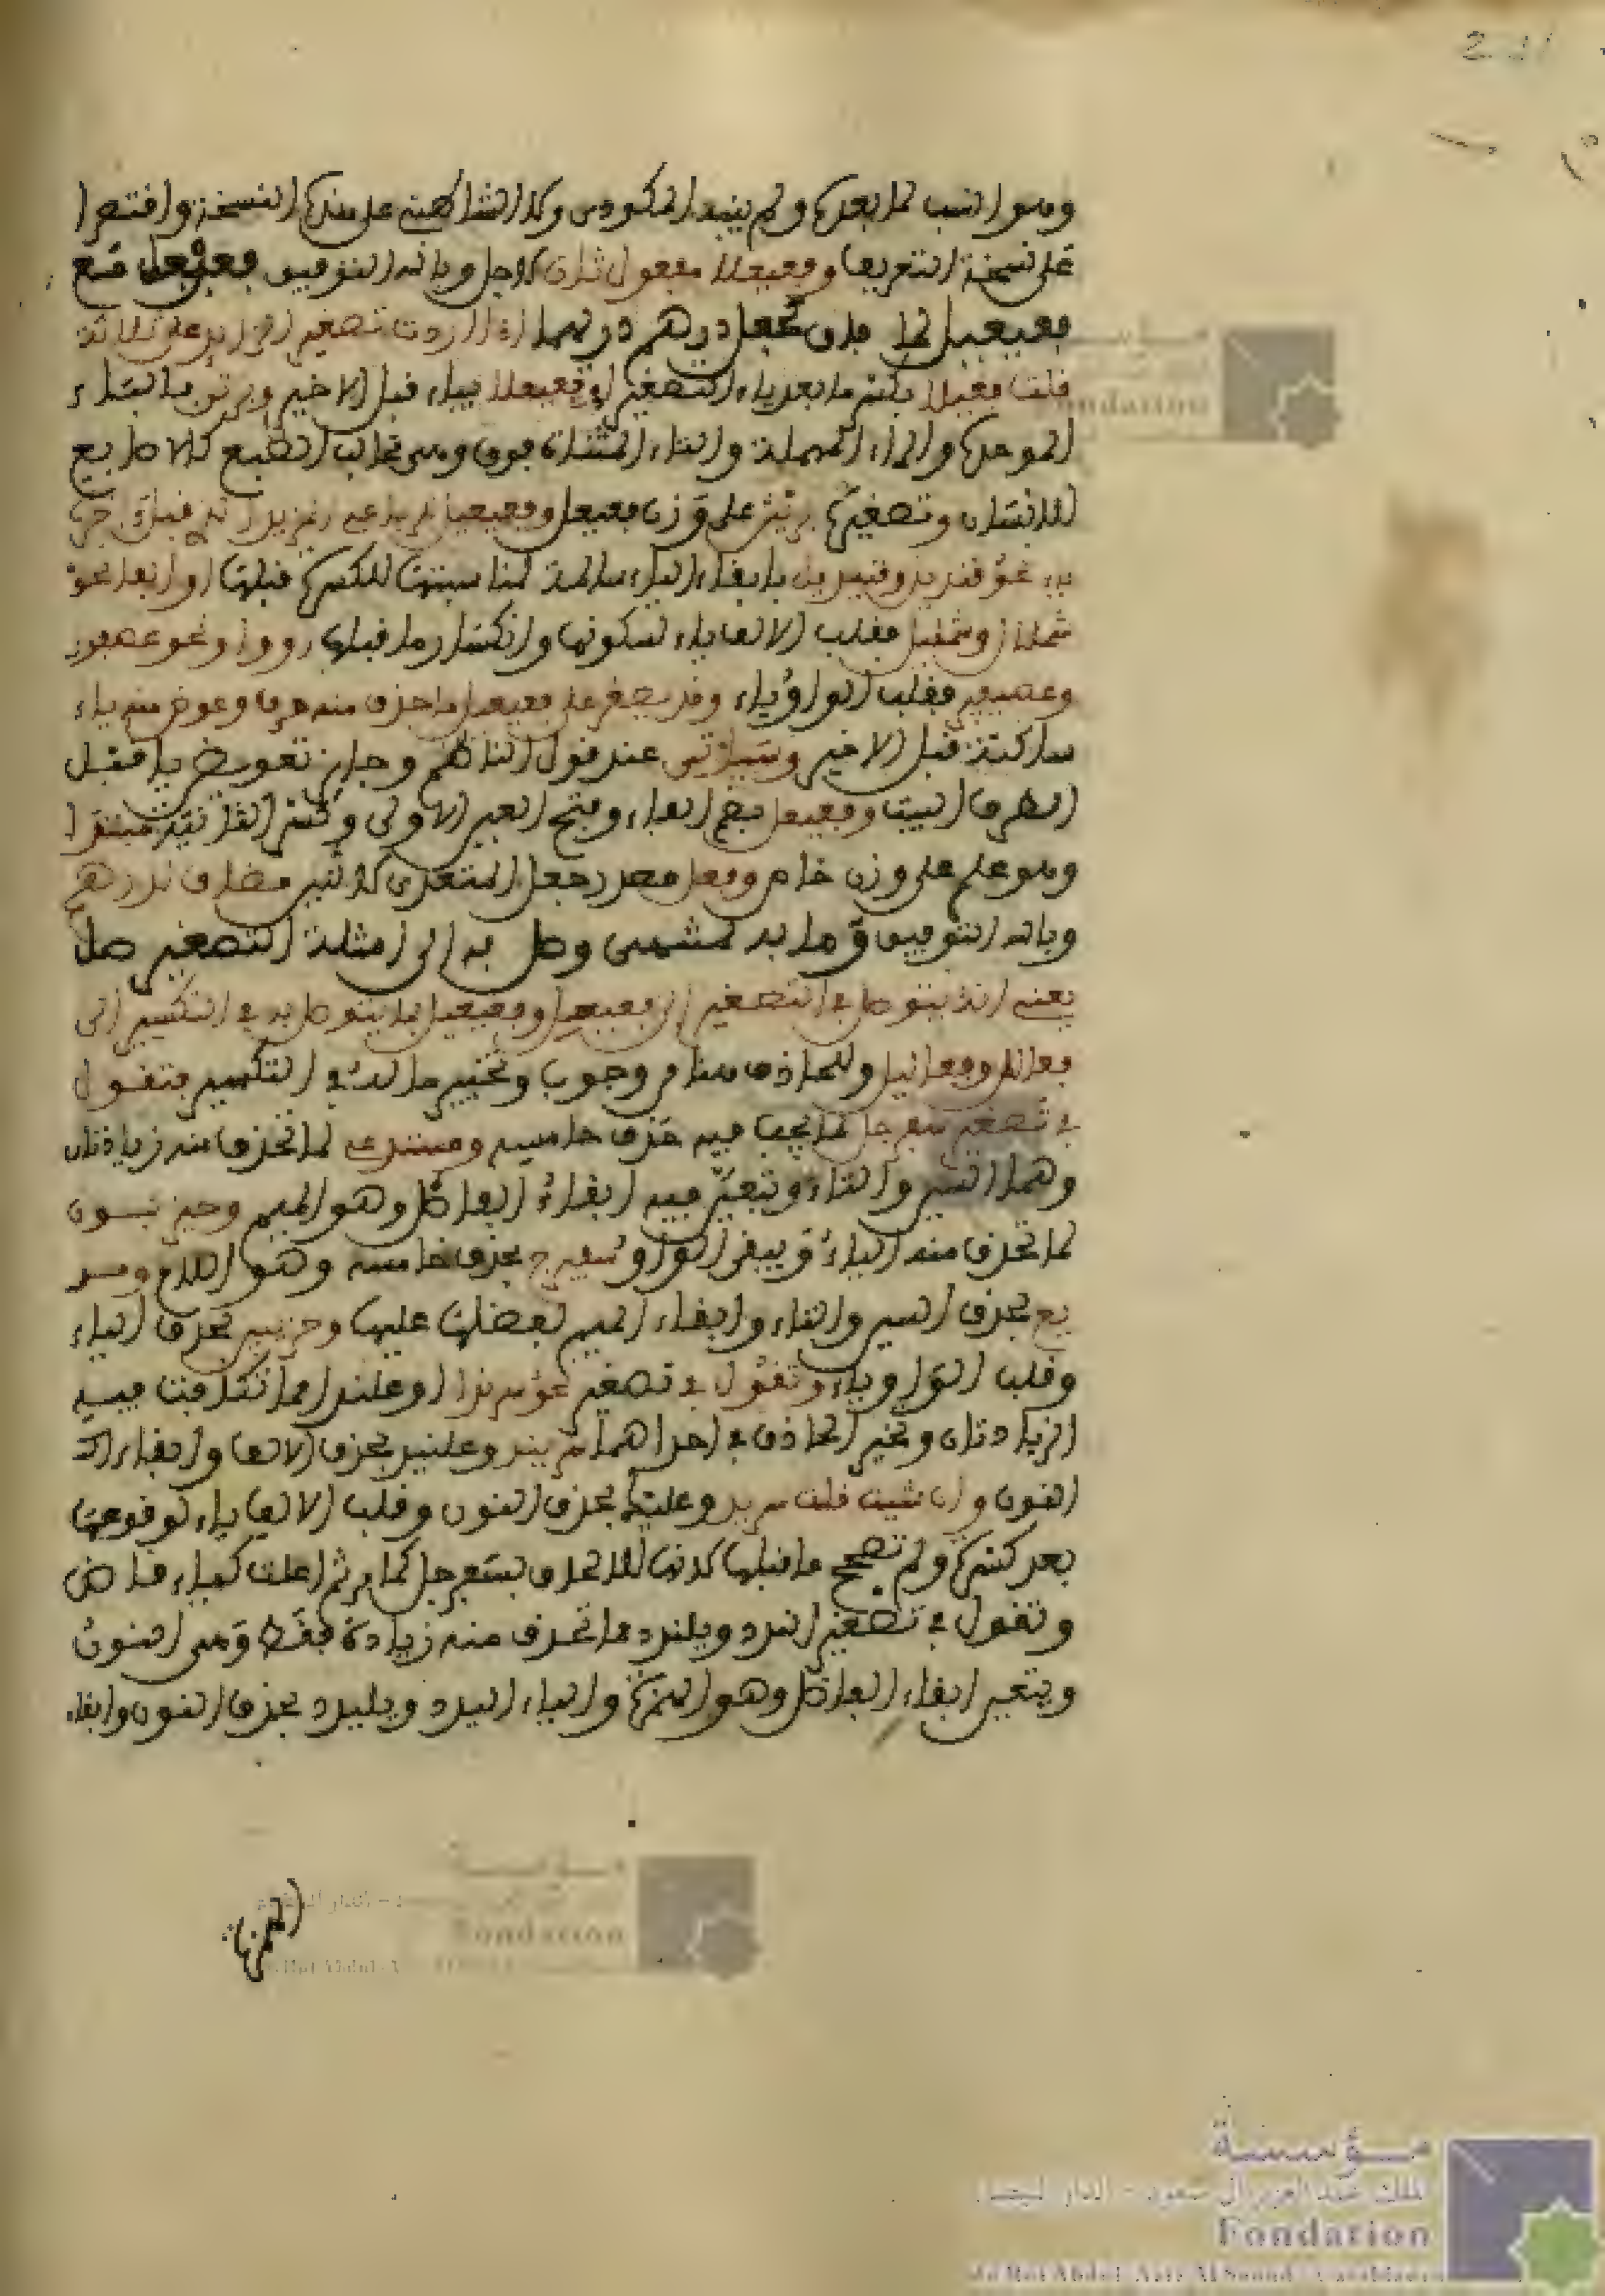 وهو انسب لما بعده ولم ينبه المكودي ولا الشاطبي على هذه النسخة واقتصرا
على نسخة التعريف وفعيعلا مفعول ثان لاجل وبالله التوفيق فعيعل مع
فعيعيل لما فاق كجعل درهم دريهما اذا اردت تصغير الزايد على ثلاثة
قلت فعيعلا بكسر ما بعد ياء التصغير او فعيعيلا بياء قبل الاخير وبرثن بالباء
الموحدة والراء المهملة والثاء المثلثة فوق وهي مخالب السبع كالاصابع
للانسان وتصغيره بريثن على وزن فعيعل وفعيعيل
نحو قنديل وقنيديل بابقاء الياء سالمة لمناسبتها للكسرة قبلها او الفا نحو
شملال وشميليل فقلب الالف ياء لسكونها وانكسار ما قبلها او واوا نحو عصفور
وعصيفير فقلب الواو ياء وقد يصغر على فعيعيل ما حذف منه حرف وعوض منه ياء
ساكنة قبل الاخير وسياتي عند قول الناظم وجايز تعويض يا قبل
الطرف البيت وفعيعل بضم الفاء وفتح العين الاولى وكسر الثانية مبتدا
وهو علم على وزن خاص وجعل مصدر جعل المتعدي لاثنين مضاف لدرهم
وبالله التوفيق وما به لمنتهى وصل به الى امثلة التصغير صل
يعني انه يتوصل في التصغير الى فعيعل وفعيعيل بما يتوصل به في التكسير الى
فعالل وفعاليل وللحاذف هنا من وجوب وتخيير ما له في التكسير فتقول
في تصغير سفرجل لما يجب فيه حذف خامسه ومستدع لما تحذف منه زيادتان
وهما السين والتاء ويتعين فيه ابقاء الفاضل وهو الميم وحيزبون
لما تحذف منه الياء ويبقى الواو سفيرج بحذف خامسه وهو اللام ومد
يع بحذف السين والتاء وابقاء الميم لفضلها عليها وحزيبين بحذف الياء
وقلب الواو ياء وتقول في تصغير نحو سرندا او علندا مما تكافت فيه
الزيادتان وتخير الحاذف في احداهما سريند وعليند بحذف الالف وابقاء
النون وان شيت قلت سريد وعليد بحذف النون وقلب الالف ياء لوقوعها
بعد كسرة ولم تصحح ما قبلها لانها للالحاق بسفرجل كما مر ثم اعلت كياء قاض
وتقول في تصغير الندد ويلندد مما تحذف منه زيادة فقط وهي النون
ويتعين ابقاء الفاضل وهو الهمزة والياء اليدد ويليدد بحذف النون وابقاء
الهمزة
مؤسسة
الملك عبد العزيز آل سعود - الدار البيضاء
Fondation
du Roi Abdul-Aziz Al Saoud - Casablanca